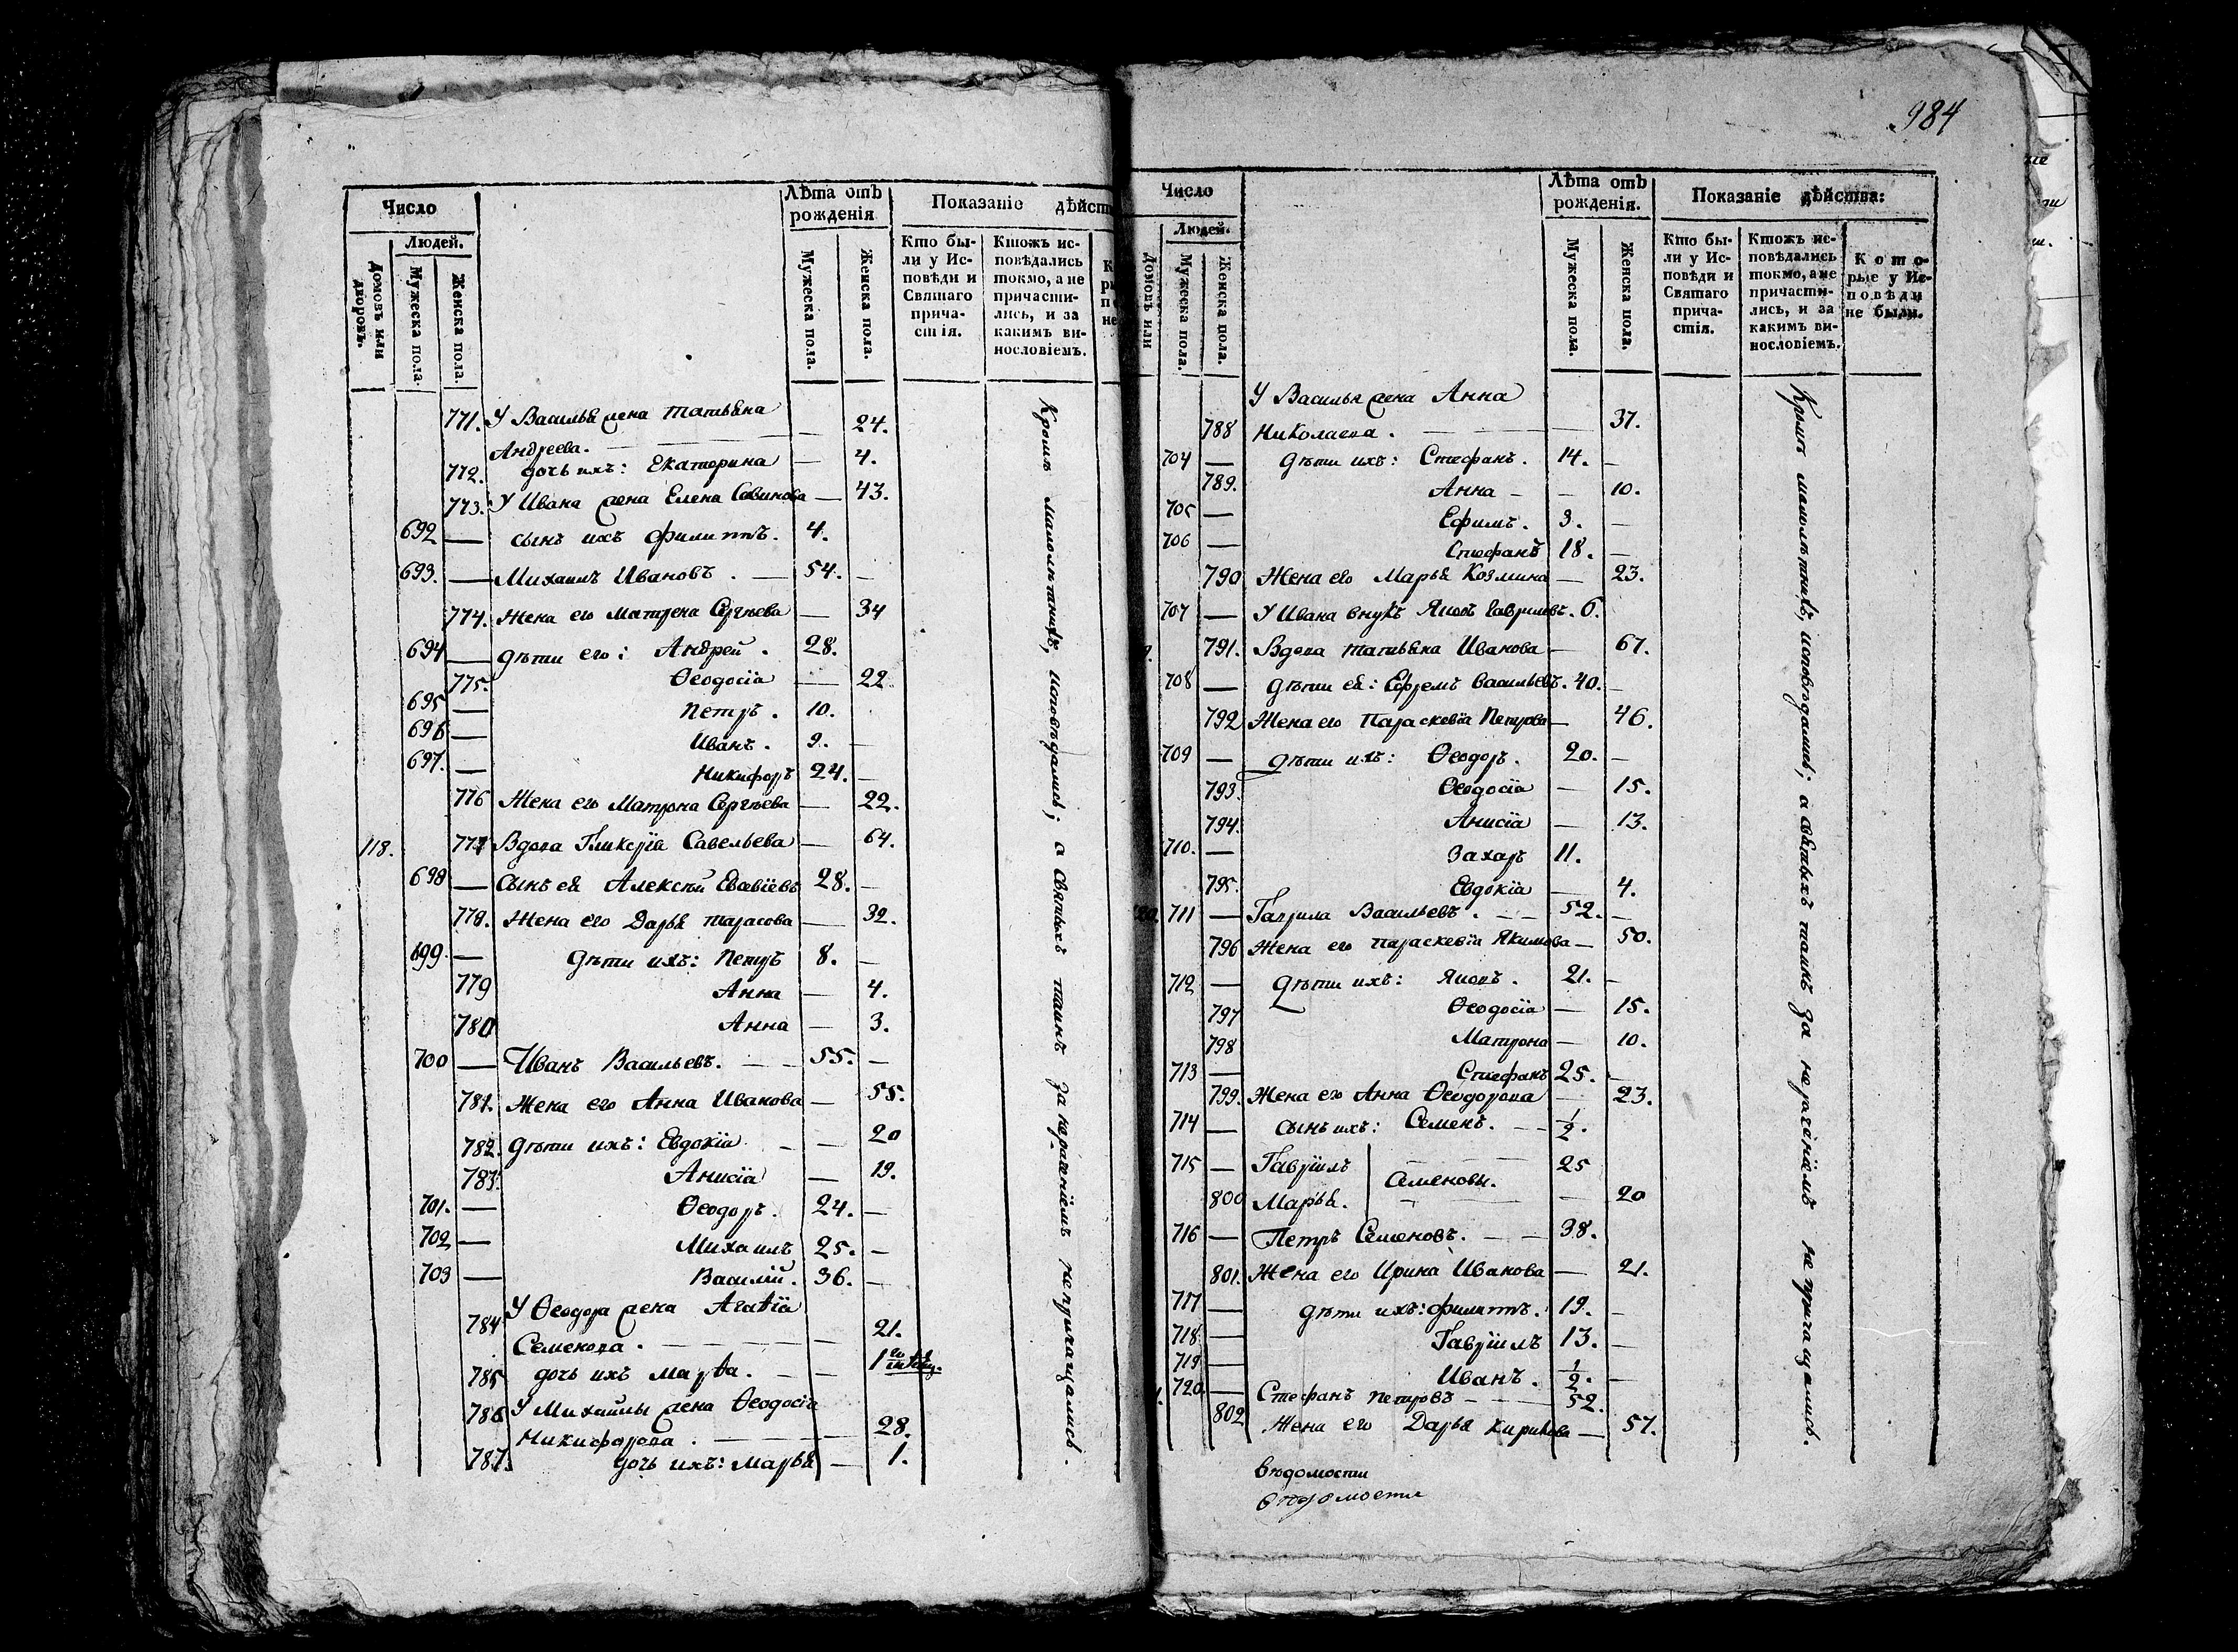 984
Число
Людей.
Домовъ или дворовъ.
Мужеска пола.
Женска пола.
Лѣта отъ рожденія
Мужеска пола.
Женска пола.
Показаніе дѣйст
Кто бы-
ли у Ис-
повѣди и
Святаго
прича-
стія.
Ктожъ ис-
повѣдались
токмо, а не
причасти-
лись, и за
какимъ ви-
нословіемъ.
771. У Василья жена Татьяна
Андреева. — 24.
772. дочь ихъ: Екатерина — 4.
773. У Ивана жена Елена Савинова — 43.
692 — сынъ ихъ Филиппъ. 4.
693. — Михаилъ Ивановъ. — 54. —
774. Жена его Матрена Сергѣева — 34
694 — дѣти его: Андрей. 28.
775. Ѳеодосіа — 22
695 — Петръ. 10.
696 — Иванъ. 9. —
697. — Никифоръ 24. —
776 Жена его Матрона Сергѣева — 22.
118. 777 Вдова Гликеріа Савельева — 64.
698 — Сынъ ея Алексѣй 28. —
778. Жена его Дарья Тарасова — 32.
699. — дѣти ихъ: Петръ 8. —
779 Анна — 4.
780 Анна — 3.
700 — Иванъ Васильевъ. — 55. —
781. Жена его Анна Иванова — 55.
782. дѣти ихъ: Евдокіа — 20
783. Анисіа — 19.
701. — Ѳеодоръ. 24. —
702 — Михаилъ 25. —
703 — Василій. 36. —
У Ѳеодора жена Агаѳіа
784 Семенова. — 21.
785 дочь ихъ Марѳа. — 1
786 У Михайлы жена Ѳеодосіа
Никифорова. — 28.
787. дочь ихъ: Марья — 1.
Кромѣ малолѣтнихъ, исповѣдались; а святыхъ таинъ за нераченіемъ не причащались.
Число
Людей.
Домовъ или
Мужеска пола.
Женска пола.
Лѣта отъ рожденія.
Мужеска пола.
Женска пола.
Показаніе дѣйства:
Кто бы-
ли у Ис-
повѣди и
Святаго
прича-
стія.
Ктожъ ис-
повѣдались
токмо, а не
причасти-
лись, и за
какимъ ви-
нословіемъ.
Кото-
рые у Ис-
повѣди
не были.
У Василья жена Анна
788 Николаева. — 37.
704 — дѣти ихъ: Стефанъ. 14. —
789. Анна — 10.
705 — Ефимъ. 3. —
706 — Стефанъ 18. —
790 Жена его Марья Козмина — 23.
707 — У Ивана внукъ Яковъ Гавриловъ. 6.
791. Вдова Татьяна Иванова — 67.
708 — дѣти ея: Ефремъ Васильевъ. 40. —
792 Жена его Параскевіа Петрова — 46.
709 — дѣти ихъ: Ѳеодоръ. 20. —
793. Ѳеодосіа — 15.
794. Анисіа — 13.
710. — Захаръ 11.
795. Евдокіа — 4.
711 — Гаврила Васильевъ. — 52. —
796 Жена его Параскевіа Якимова — 50.
712 — дѣти ихъ: Яковъ. 21. —
797 Ѳеодосіа — 15.
798 Матрона — 10.
713 — Стефанъ 25. —
799. Жена его Анна Ѳеодорова — 23.
714 — сынъ ихъ: Семенъ. — 1/2.
715 — Гавріилъ 25
Семеновы.
800 Марья. — 20
716 — Петръ Семеновъ. — 38.
801. Жена его Ирина Иванова — 21.
717 — дѣти ихъ: Филиппъ. 19. —
718 — Гавріилъ 13. —
719 — Иванъ. 1/2. —
720. — Стефанъ Петровъ — 52.
802 Жена его Дарья Кирикова — 57.
Кромѣ малолѣтнихъ, исповѣдались; а святыхъ таинъ за нераченіемъ не причащались.
вѣдомости
вѣдомости